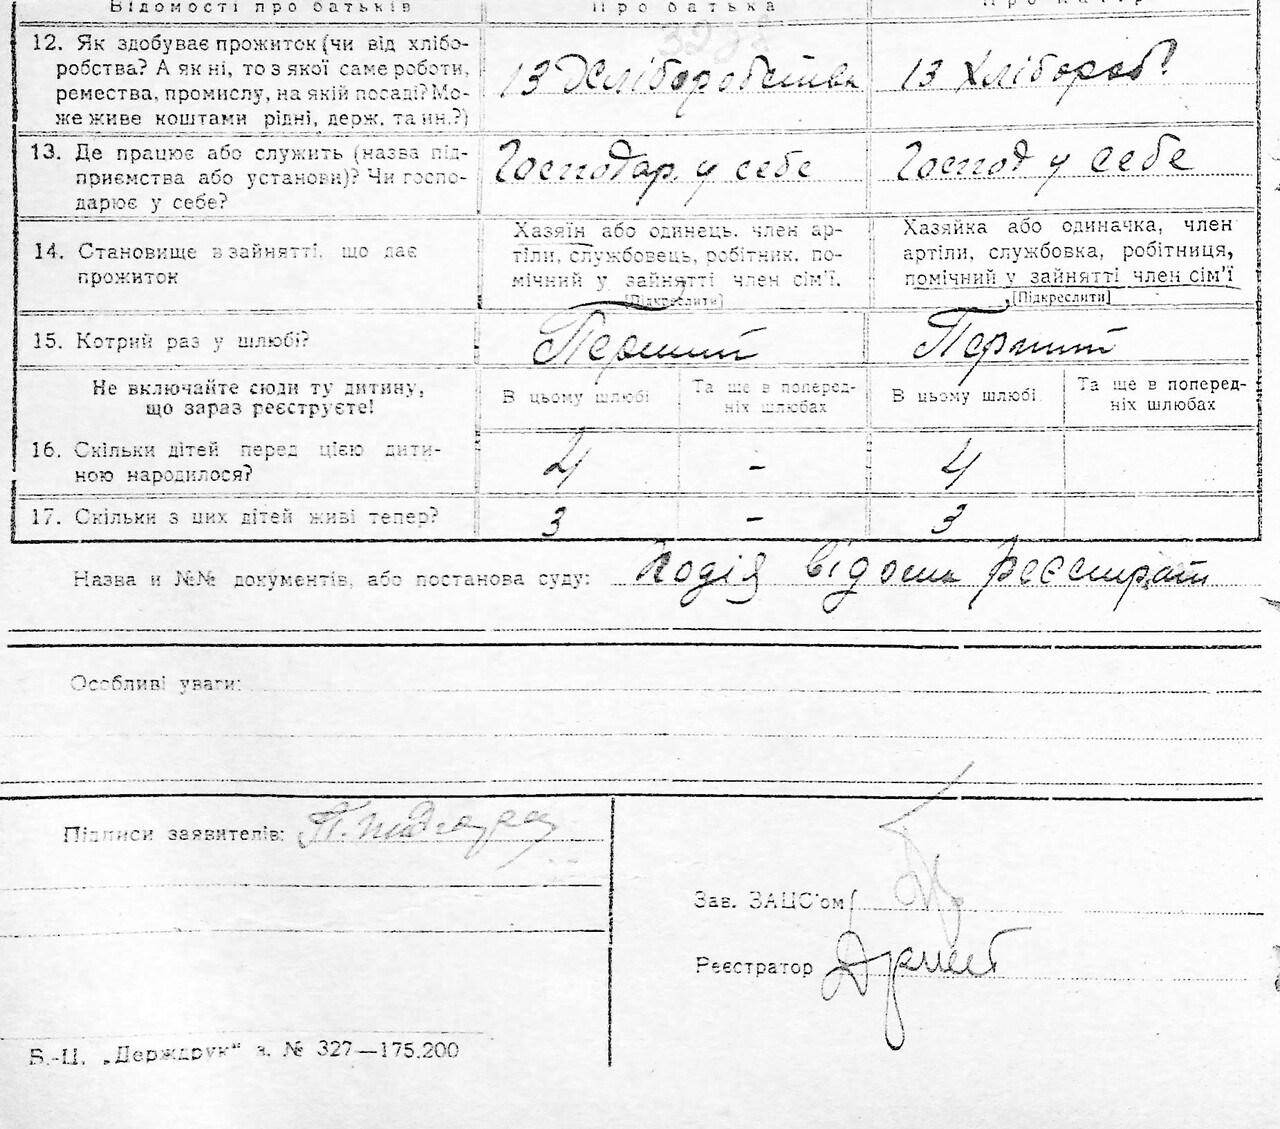 Відомості про батьків Про батька
12. Як здобуває прожиток (чи від хлібо-
робства? А як ні, то з якої саме роботи,
ремества, промислу, на якій посаді? Мо-
же живе коштами рідні, держ. та ин.?)
13 Хліборобства
13 Хлібороб?
13. Де працює або служить (назва під-
приємства або установи)? Чи госпо-
дарює у себе?
Господар. у себе
Господ у себе
14. Становище в зайнятті, що дає
прожиток
Хазяїн або одинець, член ар-
тіли, службовець, робітник, по-
мічний у зайнятті член сім'ї.
[Підкреслити]
Хазяйка або одиначка, член
артіли, службовка, робітниця,
помічний у зайнятті член сім'ї
[Підкреслити]
15. Котрий раз у шлюбі?
Перший
Перший
Не включайте сюди ту дитину,
що зараз реєструєте!
В цьому шлюбі
Та ще в поперед-
ніх шлюбах
В цьому шлюбі
Та ще в поперед-
ніх шлюбах
16. Скільки дітей перед цією дити-
ною народилося?
4 - 4
17. Скільки з цих дітей живі тепер?
3 - 3
Назва и №№ документів, або постанова суду: Подія відома реєстрат
Особливі уваги:
Підписи заявителів:
Зав. ЗАЦС'ом
Реєстратор
Б.-Ц. „Держдрук" з. № 327—175.200